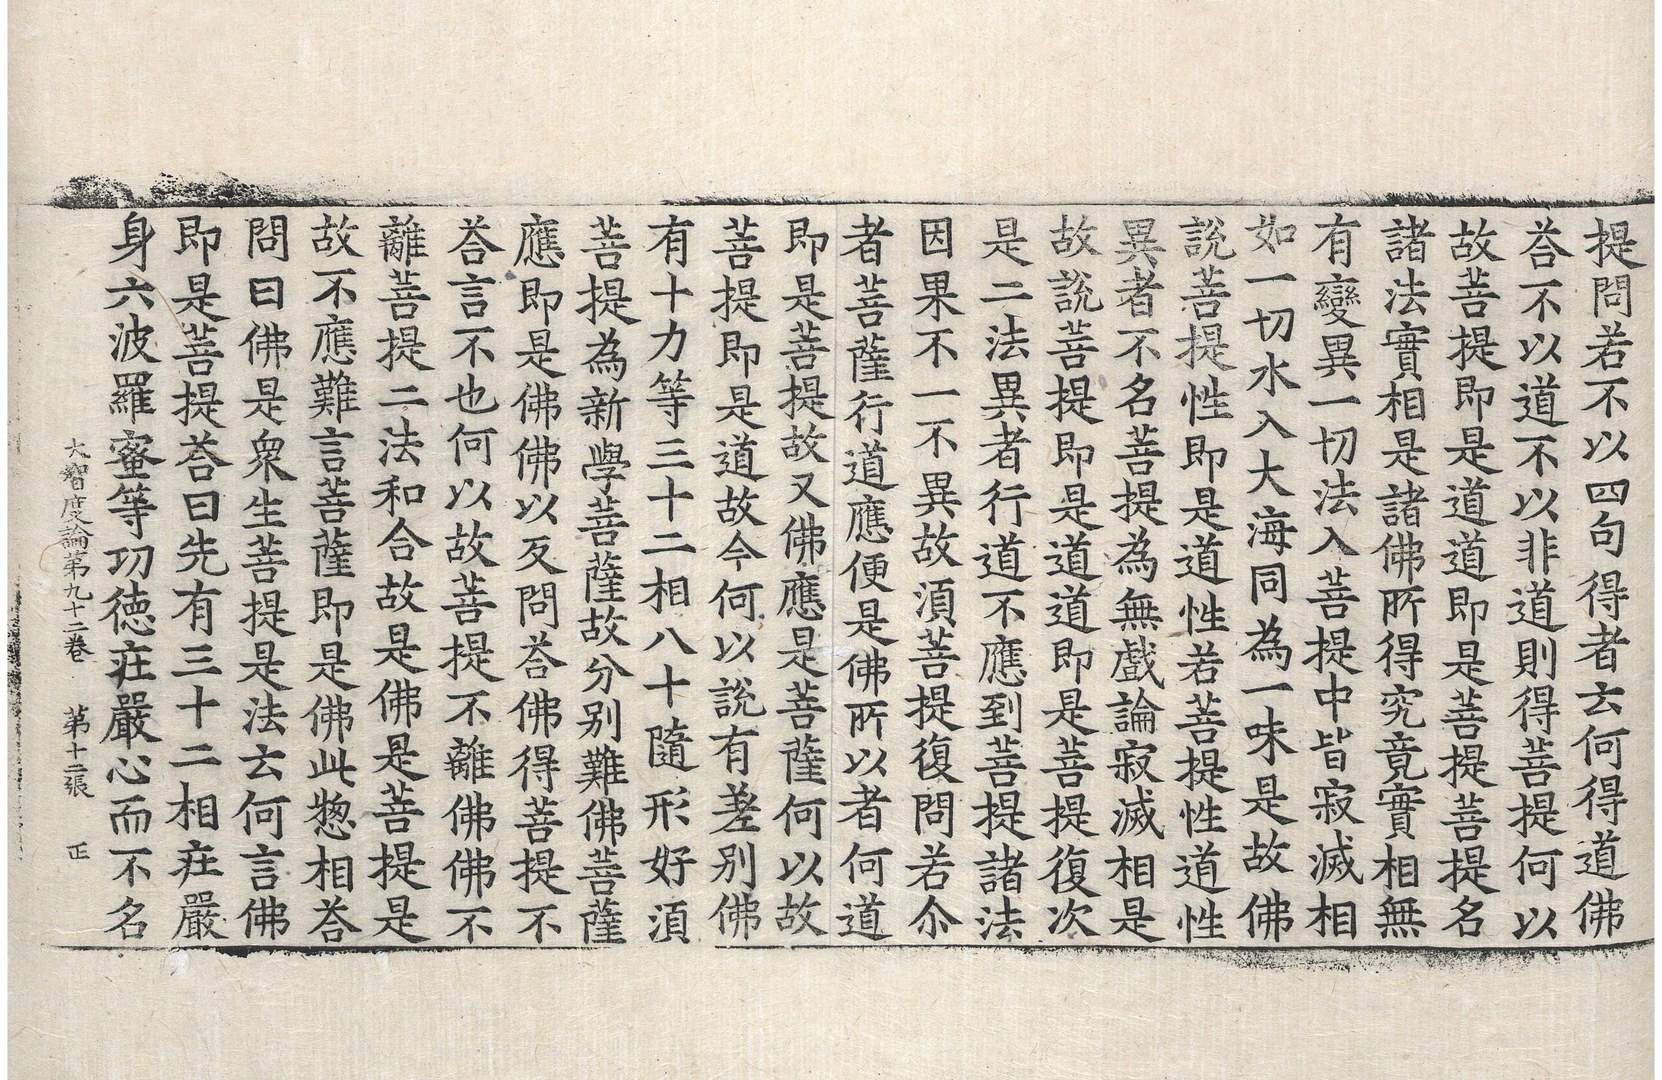 提問若不以四句得者云何得道佛
荅不以道不以非道則得菩提何以
故菩提即是道道即是菩提菩提名
諸法實相是諸佛所得究竟實相無
有變異一切法入菩提中皆寂滅相
如一切水入大海同為一味是故佛
說菩提性即是道性若菩提性道性
異者不名菩提為無戲論寂滅相是
故說菩提即是道道即是菩提復次
是二法異者行道不應到菩提諸法
因果不一不異故須菩提復問若尒
者菩薩行道應便是佛所以者何道
即是菩提故又佛應是菩薩何以故
菩提即是道故今何以說有差別佛
有十力等三十二相八十隨形好須
菩提為新學菩薩故分別難佛菩薩
應即是佛佛以反問荅佛得菩提不
荅言不也何以故菩提不離佛佛不
離菩提二法和合故是佛是菩提是
故不應難言菩薩即是佛此惣相荅
問曰佛是衆生菩提是法云何言佛
即是菩提荅曰先有三十二相莊嚴
身六波羅蜜等功德莊嚴心而不名
大智度論第九十二卷 第十二張 正